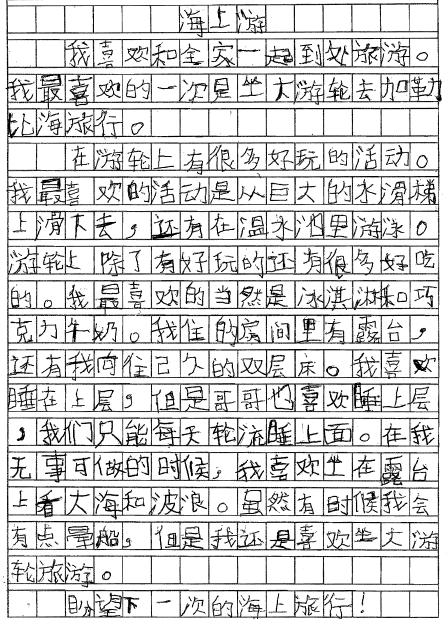 海上游
我喜欢和全家一起到处旅游。
我最喜欢的一次是坐大游轮去加勒
比海旅行。
在游轮上有很多好玩的活动。
我最喜欢的活动是从巨大的水滑梯
上滑下去，还有在温水池里游泳。
游轮上除了有好玩的还有很多好吃
的。我最喜欢的当然是冰淇淋和巧
克力牛奶。我住的房间里有露台，
还有我向往已久的双层床。我喜欢
睡在上层，但是哥哥也喜欢睡上层
，我们只能每天轮流睡上面。在我
无事可做的时候，我喜欢坐在露台
上看大海和波浪。虽然有时候我会
有点晕船，但是我还是喜欢坐大游
轮旅游。
盼望下一次的海上旅行！